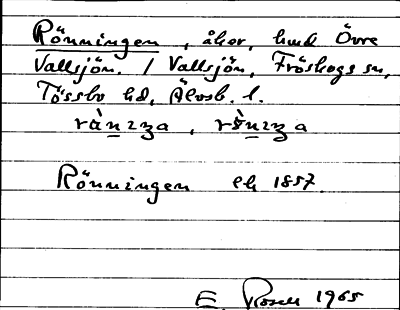 Rönningen, åker, hmd Övre
Vallsjön. / Vallsjön, Fröskogs sn,
Tössbo hd, Älvsb. l.
Rönningen ek 1857.
E. Rosell 1965